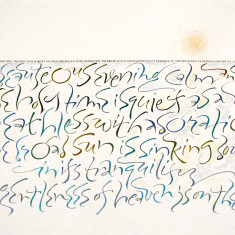 beauteous evening calm an
e holy time is quiet as a
eathless with adoration
e broad sun is sinking do
in its tranquility
gentleness of heaven is on the